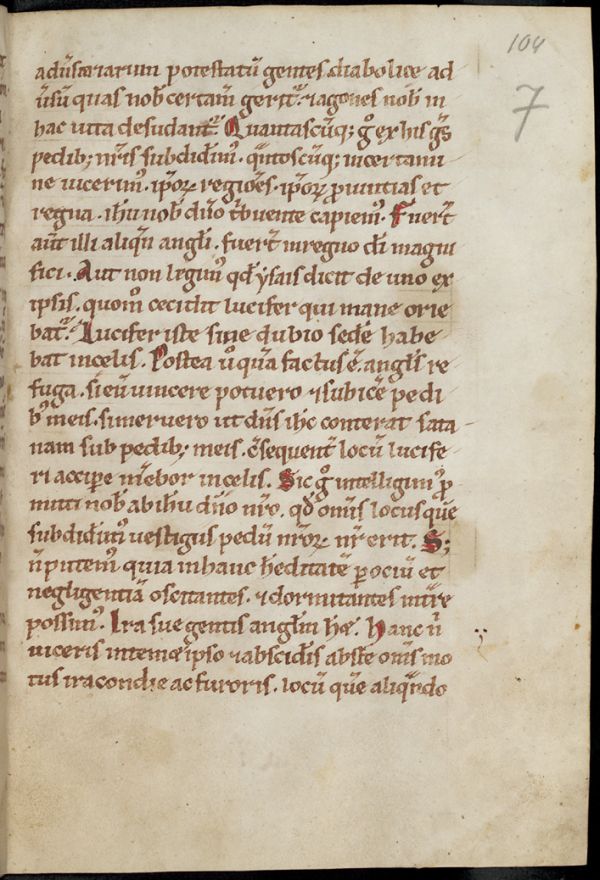 104
7
adūsariarum potestatū gentes diabolice ad
ūsū quas nob̄ certam̄ gerit᷑. ⁊ agones nob̄ in
hac uita desudant᷑. Quantascūq; g̊ ex his gēs
pedib; nr̄is subdidim᷒. q̄ntoscūq; in certami
ne uicerim᷒. ip̄oꝝ regiōes. ip̄oꝝ ꝓuintias et
regna. ih̄u nob̄ dn̄o t̄buente capiem᷒. Fuer̄t
aūt illi aliqn̄ angl̄i. fuer̄t in regno dī magni
fici. Aut non legim᷒ qd̄ ysaias dicit de uno ex
ipsis. quom̄ cecidit lucifer qui mane orie
bat᷑. Lucifer iste sine dubio sedē habe
bat in celis. Postea ū q̄m factus ē. angl̄s re
fuga. si eū uincere potuero ⁊ subicē pedi
b᷒ meis. si meruero ut dn̄s ih̄c conterat sata
nam sub pedib; meis. c̄sequent̄ locū lucife
ri accipe m̄ebor in celis. Sic g̊ intelligim᷒ ꝓ
mitti nob̄ ab ih̄u dn̄o nr̄o. qd̄ om̄is locus quē
subdidim᷒ uestigiis pedū nr̄oꝝ. nr̄ erit. S;
n̄ putem᷒ quia in hanc h̄editatē ꝑ ociū et
negligentiā oscitantes. ⁊ dormitantes int̄re
possim᷒. Ira sue gentis angl̄m h̄t. Hanc n̄
uiceris in temet ipso ⁊ abscid̄is abs te om̄is mo
tus iracondie ac furoris. locū quē aliqn̄do